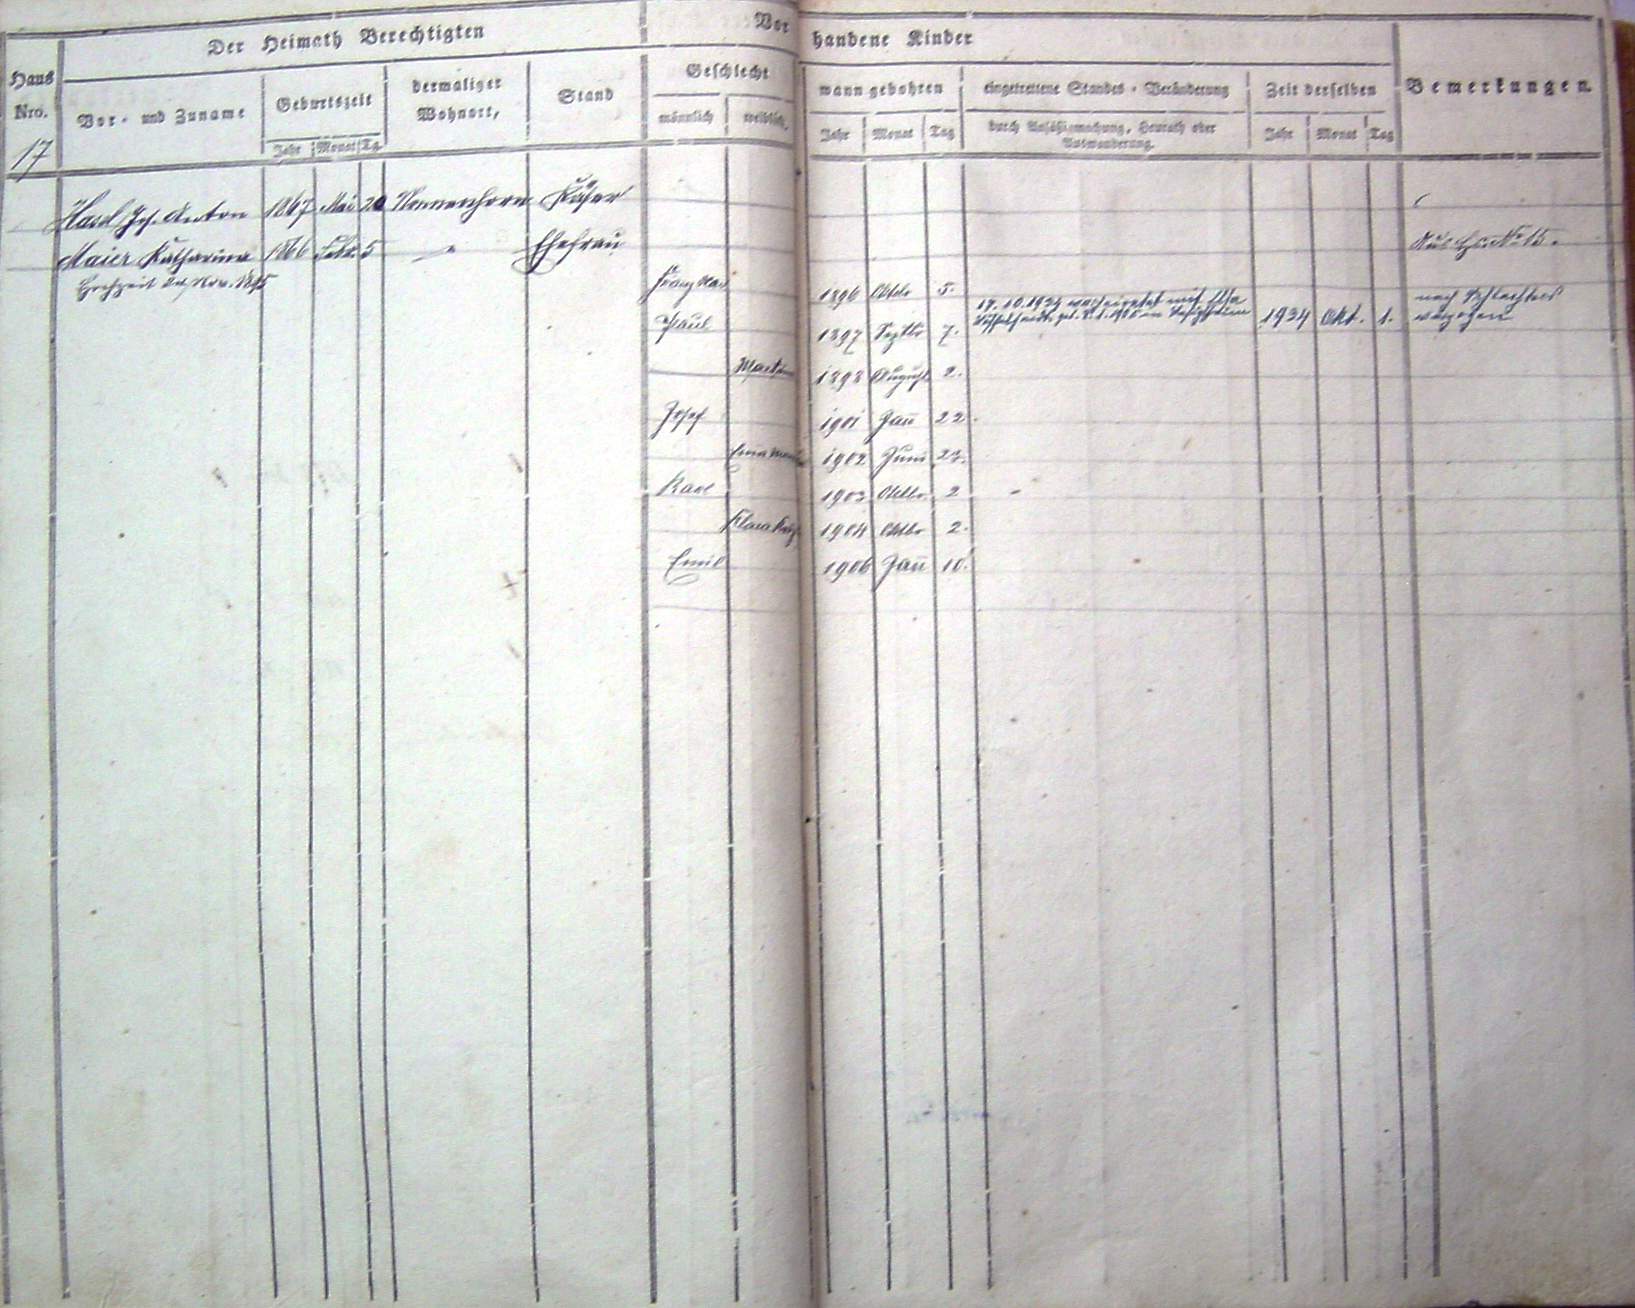 Der Heimath Berechtigten
Vorhandene Kinder
Haus Nro.
17
Vor- und Zuname
Geburtszeit
Jahr Monat Tg
dermaliger Wohnort,
Stand
Geschlecht
männlich weiblich
wann gebohren
Jahr Monat Tag
eingetrettene Standes-Veränderung
durch Ansäßigmachung, Heurath oder
Auswanderung.
Zeit derselben
Jahr Monat Tag
Bemerkungen.
Jos. Anton 1867 Mai 20 Nonnenhorn Käser
Maier Katharina 1866 Febr. 5 " Ehefrau Aus Hs. No 15.
Hochzeit Nov. 1895
Franz 1896 Oktbr 5.
17.10.1934 verheiratet mit
Paul 1897 Septbr 7. 1934 Okt. 1. nach Schlachters
verzogen
1898 August 2.
Josef 1901 Jan 22.
1902 Juni 27.
Karl 1903 Oktbr. 2
Klara 1904 Oktbr 2.
Emil 1906 Jan 10.